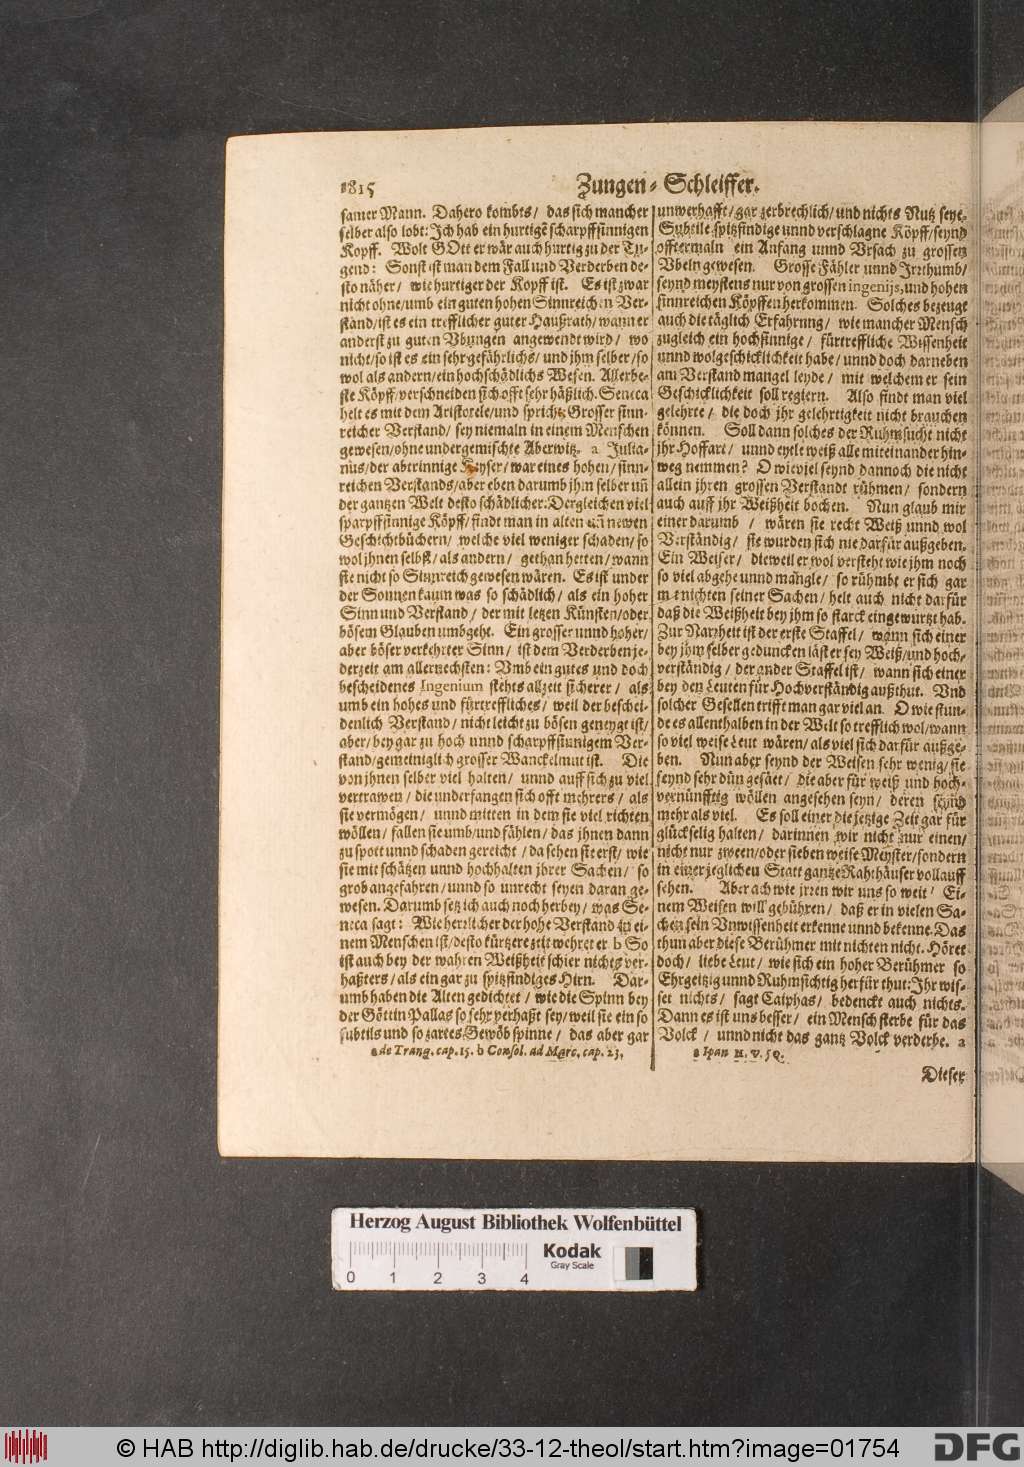 1815
Zungen-Schleiffer.
samer Mann. Dahero kombts/ das sich mancher
selber also lobt: Ich hab ein hurtigẽ scharpffsinnigen
Kopff. Wolt GOtt er wär auch hurtig zu der Tu-
gend: Sonst ist man dem Fall und Verderben de-
sto näher/ wie hurtiger der Kopff ist. Es ist zwar
nicht ohne/ umb ein guten hohen Sinnreichen Ver-
stand/ ist es ein trefflicher guter Haußrath/ wann er
anderst zu guten Ubungen angewendt wird/ wo
nicht/ so ist es ein sehr gefährlichs/ und jhm selber/ so
wol als andern/ ein hochschädlichs Wesen. Allerbe-
ste Köpff/ verschneiden sich offt sehr häßlich. Seneca
helt es mit dem Aristotele/ und spricht: Grosser sinn-
reicher Verstand/ sey niemaln in einem Menschen
gewesen/ ohne undergemischte Aberwitz. a Julia-
nus/ der abtrinnige Keyser/ war eines hohen/ sinn-
reichen Verstands/ aber eben darumb jhm selber uñ
der gantzen Welt desto schädlicher. Dergleichen viel
scharpffsinnige Köpff/ findt man in alten uñ newen
Geschichtbüchern/ welche viel weniger schaden/ so
wol jhnen selbst/ als andern/ gethan hetten/ wann
sie nicht so Sinnreich gewesen wären. Es ist under
der Sonnen kaum was so schädlich/ als ein hoher
Sinn und Verstand/ der mit letzen Künsten/ oder
bösem Glauben umbgeht. Ein grosser unnd hoher/
aber böser verkehrter Sinn/ ist dem Verderben je-
derzeit am allernechsten: Umb ein gutes und doch
bescheidenes Ingenium stehts allzeit sicherer/ als
umb ein hohes und fürtreffliches/ weil der beschei-
denlich Verstand/ nicht leicht zu bösen geneygt ist/
aber/ bey gar zu hoch unnd scharpffsinnigem Ver-
stand/ gemeiniglich grosser Wanckelmut ist. Die
von jhnen selber viel halten/ unnd auff sich zu viel
vertrawen/ die underfangen sich offt mehrers/ als
sie vermögen/ unnd mitten in dem sie viel richten
wöllen/ fallen sie umb/ und fählen/ das jhnen dann
zu spott unnd schaden gereicht/ da sehen sie erst/ wie
sie mit schätzen unnd hochhalten jhrer Sachen/ so
grob angefahren/ unnd so unrecht seyen daran ge-
wesen. Darumb setz ich auch noch herbey/ was Se-
neca sagt: Wie herrlicher der hohe Verstand in ei-
nem Menschen ist/ desto kürtzere zeit wehret er b So
ist auch bey der wahren Weißheit schier nichts ver-
haßters/ als ein gar zu spitzfindiges Hirn. Dar-
umb haben die Alten gedichtet/ wie die Spinn bey
der Göttin Pallas so sehr verhaßt sey/ weil sie ein so
subtils und so zartes Gewöb spinne/ das aber gar
a de Tranq. cap. 15. b Consol. ad Marc. cap. 23.
unwerhafft/ gar zerbrechlich/ und nichts Nutz seye.
Subtile spitzfindige unnd verschlagne Köpff/ seynd
offtermaln ein Anfang unnd Ursach zu grossen
Ubeln gewesen. Grosse Fähler unnd Irrthumb/
seynd meystens nur von grossen ingenijs, und hohen
sinnreichen Köpffen herkommen. Solches bezeugt
auch die täglich Erfahrung/ wie mancher Mensch
zugleich ein hochsinnige/ fürtreffliche Wissenheit
unnd wolgeschicklichkeit habe/ unnd doch darneben
am Verstand mangel leyde/ mit welchem er sein
Geschicklichkeit soll regiern. Also findt man viel
gelehrte/ die doch jhr gelehrtigkeit nicht brauchen
können. Soll dann solches der Ruhmsucht nicht
jhr Hoffart/ unnd eytele weiß alle miteinander hin-
weg nemmen? O wieviel seynd dannoch die nicht
allein jhren grossen Verstandt rühmen/ sondern
auch auff jhr Weißheit bochen. Nun glaub mir
einer darumb/ wären sie recht Weiß unnd wol
Verständig/ sie wurden sich nie darfür außgeben.
Ein Weiser/ dieweil er wol versteht wie jhm noch
so viel abgehe unnd mangle/ so rühmbt er sich gar
mit nichten seiner Sachen/ helt auch nicht darfür
daß die Weißheit bey jhm so starck eingewurtzt hab.
Zur Narrheit ist der erste Staffel/ wann sich einer
bey jhm selber geduncken läst er sey Weiß/ und hoch-
verständig/ der ander Staffel ist/ wann sich einer
bey den Leuten für Hochverständig außthut. Und
solcher Gesellen trifft man gar viel an. O wie stun-
de es allenthalben in der Welt so trefflich wol/ wann
so viel weise Leut wären/ als viel sich darfür außge-
ben. Nun aber seynd der Weisen sehr wenig/ sie
seynd sehr dün gesäet/ die aber für weiß und hoch-
vernünfftig wöllen angesehen seyn/ deren seynd
mehr als viel. Es soll einer die jetzige Zeit gar für
glückselig halten/ darinnen wir nicht nur einen/
nicht nur zween/ oder sieben weise Meyster/ sondern
in einer jeglichen Statt gantze Rahthäuser vollauff
sehen. Aber ach wie irren wir uns so weit! Ei-
nem Weisen will gebühren/ daß er in vielen Sa-
chen sein Unwissenheit erkenne unnd bekenne. Das
thun aber diese Berühmer mit nichten nicht. Höret
doch/ liebe Leut/ wie sich ein hoher Berühmer so
Ehrgeitzig unnd Ruhmsichtig herfür thut: Ihr wis-
set nichts/ sagt Caiphas/ bedenckt auch nichts.
Dann es ist uns besser/ ein Mensch sterbe für das
Volck/ unnd nicht das gantz Volck verderbe. a
a Ioan 11. v. 50.
Dieser
Herzog August Bibliothek Wolfenbüttel
Kodak
Gray Scale
0 1 2 3 4
© HAB http://diglib.hab.de/drucke/33-12-theol/start.htm?image=01754
DFG